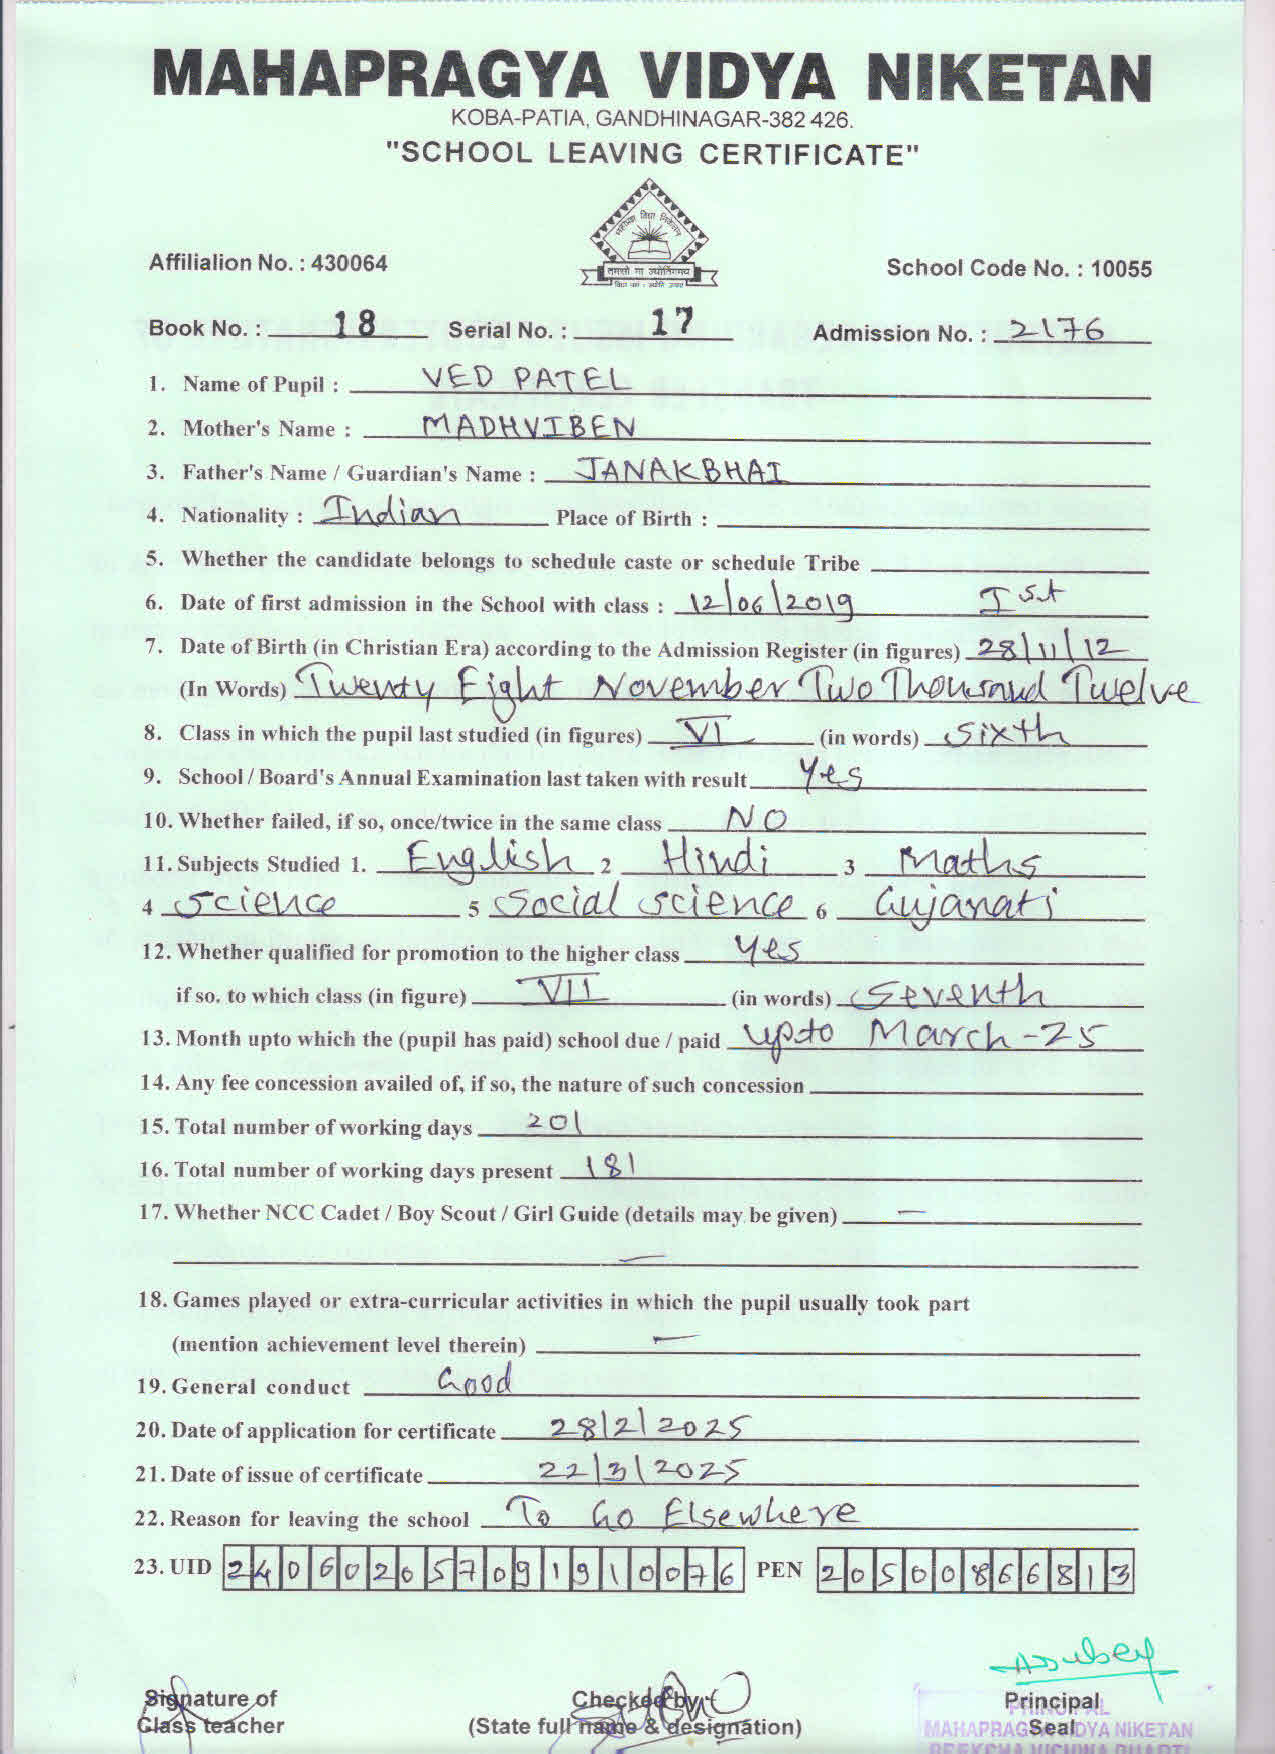 MAHAPRAGYA VIDYA NIKETAN
KOBA-PATIA, GANDHINAGAR-382 426.
"SCHOOL LEAVING CERTIFICATE"
महाप्रज्ञ विद्या निकेतन
तमसो मा ज्योतिर्गमय
Affilialion No. : 430064
School Code No. : 10055
Book No. : 18 Serial No. : 17 Admission No. : 2176
1. Name of Pupil : VED PATEL
2. Mother's Name : MADHVIBEN
3. Father's Name / Guardian's Name : JANAKBHAI
4. Nationality : Indian Place of Birth :
5. Whether the candidate belongs to schedule caste or schedule Tribe
6. Date of first admission in the School with class : 12/06/2019 Ist
7. Date of Birth (in Christian Era) according to the Admission Register (in figures) 28/11/12
(In Words) Twenty Eight November Two Thousand Twelve
8. Class in which the pupil last studied (in figures) VI (in words) Sixth
9. School / Board's Annual Examination last taken with result Yes
10. Whether failed, if so, once/twice in the same class NO
11. Subjects Studied 1. English 2 Hindi 3 Maths
4 Science 5 Social Science 6 Gujarati
12. Whether qualified for promotion to the higher class Yes
if so. to which class (in figure) VII (in words) Seventh
13. Month upto which the (pupil has paid) school due / paid upto March-25
14. Any fee concession availed of, if so, the nature of such concession
15. Total number of working days 201
16. Total number of working days present 181
17. Whether NCC Cadet / Boy Scout / Girl Guide (details may be given) —
—
18. Games played or extra-curricular activities in which the pupil usually took part
(mention achievement level therein) —
19. General conduct Good
20. Date of application for certificate 28/2/2025
21. Date of issue of certificate 22/3/2025
22. Reason for leaving the school To Go Elsewhere
23. UID 240602057091910076 PEN 20500866813
ADubey
Signature of Checked by Principal
Class teacher (State full name & designation) Seal
PRINCIPAL
MAHAPRAGYA VIDYA NIKETAN
PREKSHA VISHWA BHARTI